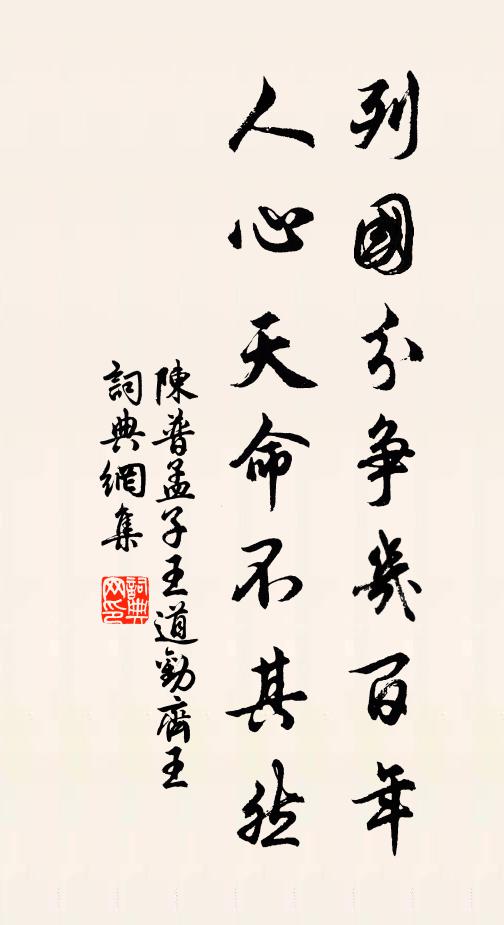 列國分爭幾百年
人心天命不其然
陳普孟子王道勸齊王
詞典網集
詞典网印